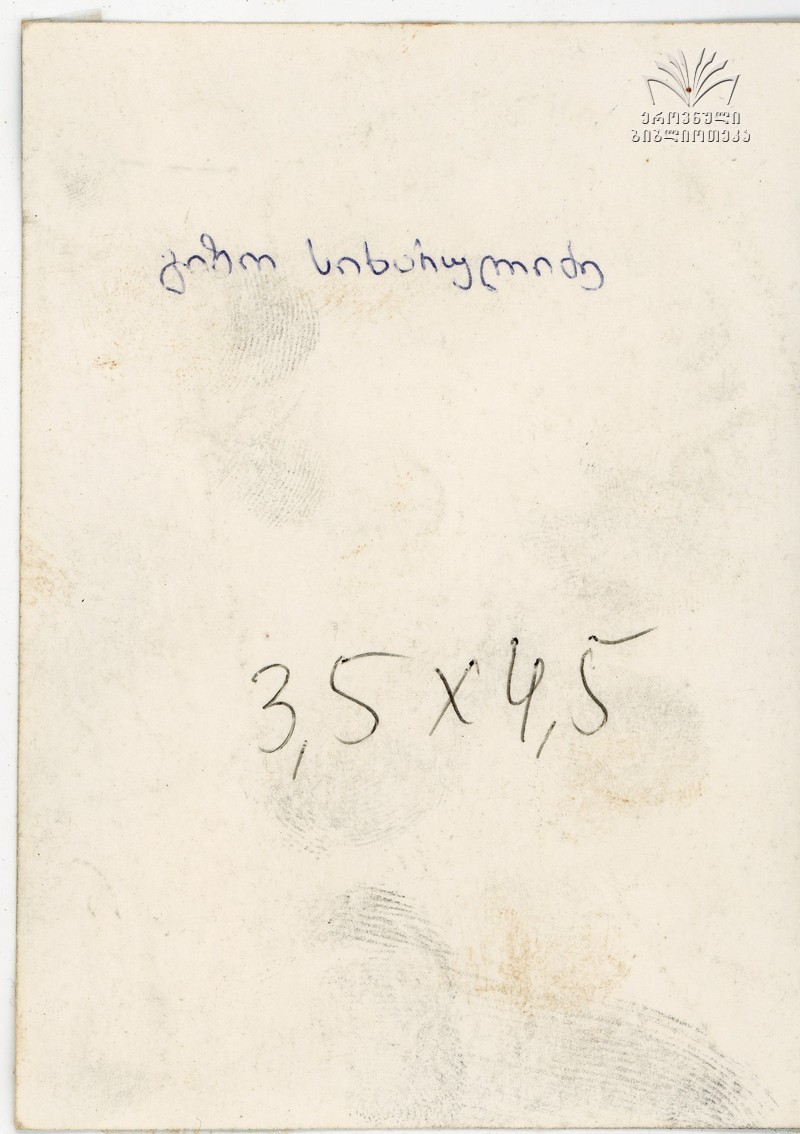 ეროვნული
ბიბლიოთეკა
გიზო სიხარულიძე
3,5 x 4,5